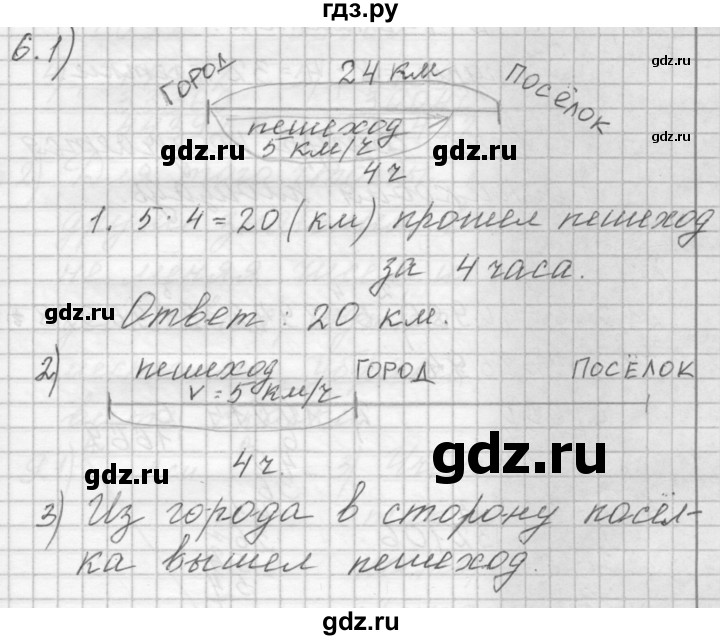 гдз.ру
6.1)
ГОРОД 24 км ПОСЁЛОК
gdz.ru
пешеход
5 км/ч
gdz.ru gdz.ru gdz.ru
4 ч
1. 5 · 4 = 20 (км) прошел пешеход
за 4 часа.
gdz.ru
Ответ: 20 км.
gdz.ru
2) пешеход ГОРОД ПОСЁЛОК
v = 5 км/ч
gdz.ru
4 ч.
gdz.ru
3) Из города в сторону посёл-
ка вышел пешеход.
gdz.ru gdz.ru
gdz.ru